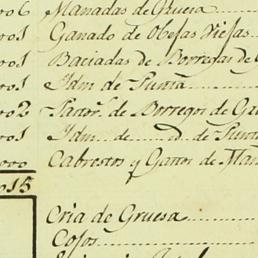 ro6 Manadas de Gruesa
ro1 Ganado de Obejas Viejas
ro1 Baciadas de Borregas de
ro1 Idm de Punta
ro2 de Borregos de
ro1 Idm de de
ooo Cabrestos y de
o15
Cria de Gruesa
Cojos